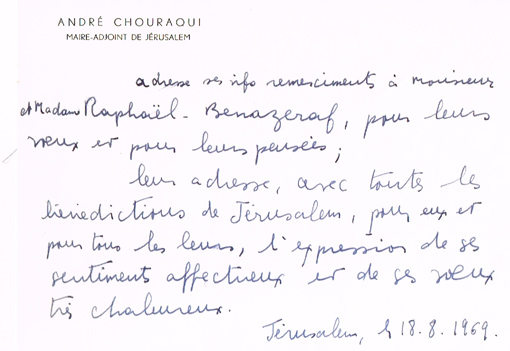 ANDRÉ CHOURAQUI
MAIRE-ADJOINT DE JÉRUSALEM
adresse ses remerciments à Monsieur
et Madame Raphaël - Benazeraf, pour leurs
vœux et pour leurs pensées ;
leur adresse, avec toutes les
bénédictions de Jérusalem, pour eux et
pour tous les leurs, l'expression de ses
sentiments affectueux et de ses vœux
très chaleureux.
Jérusalem, le 18.8.1969.